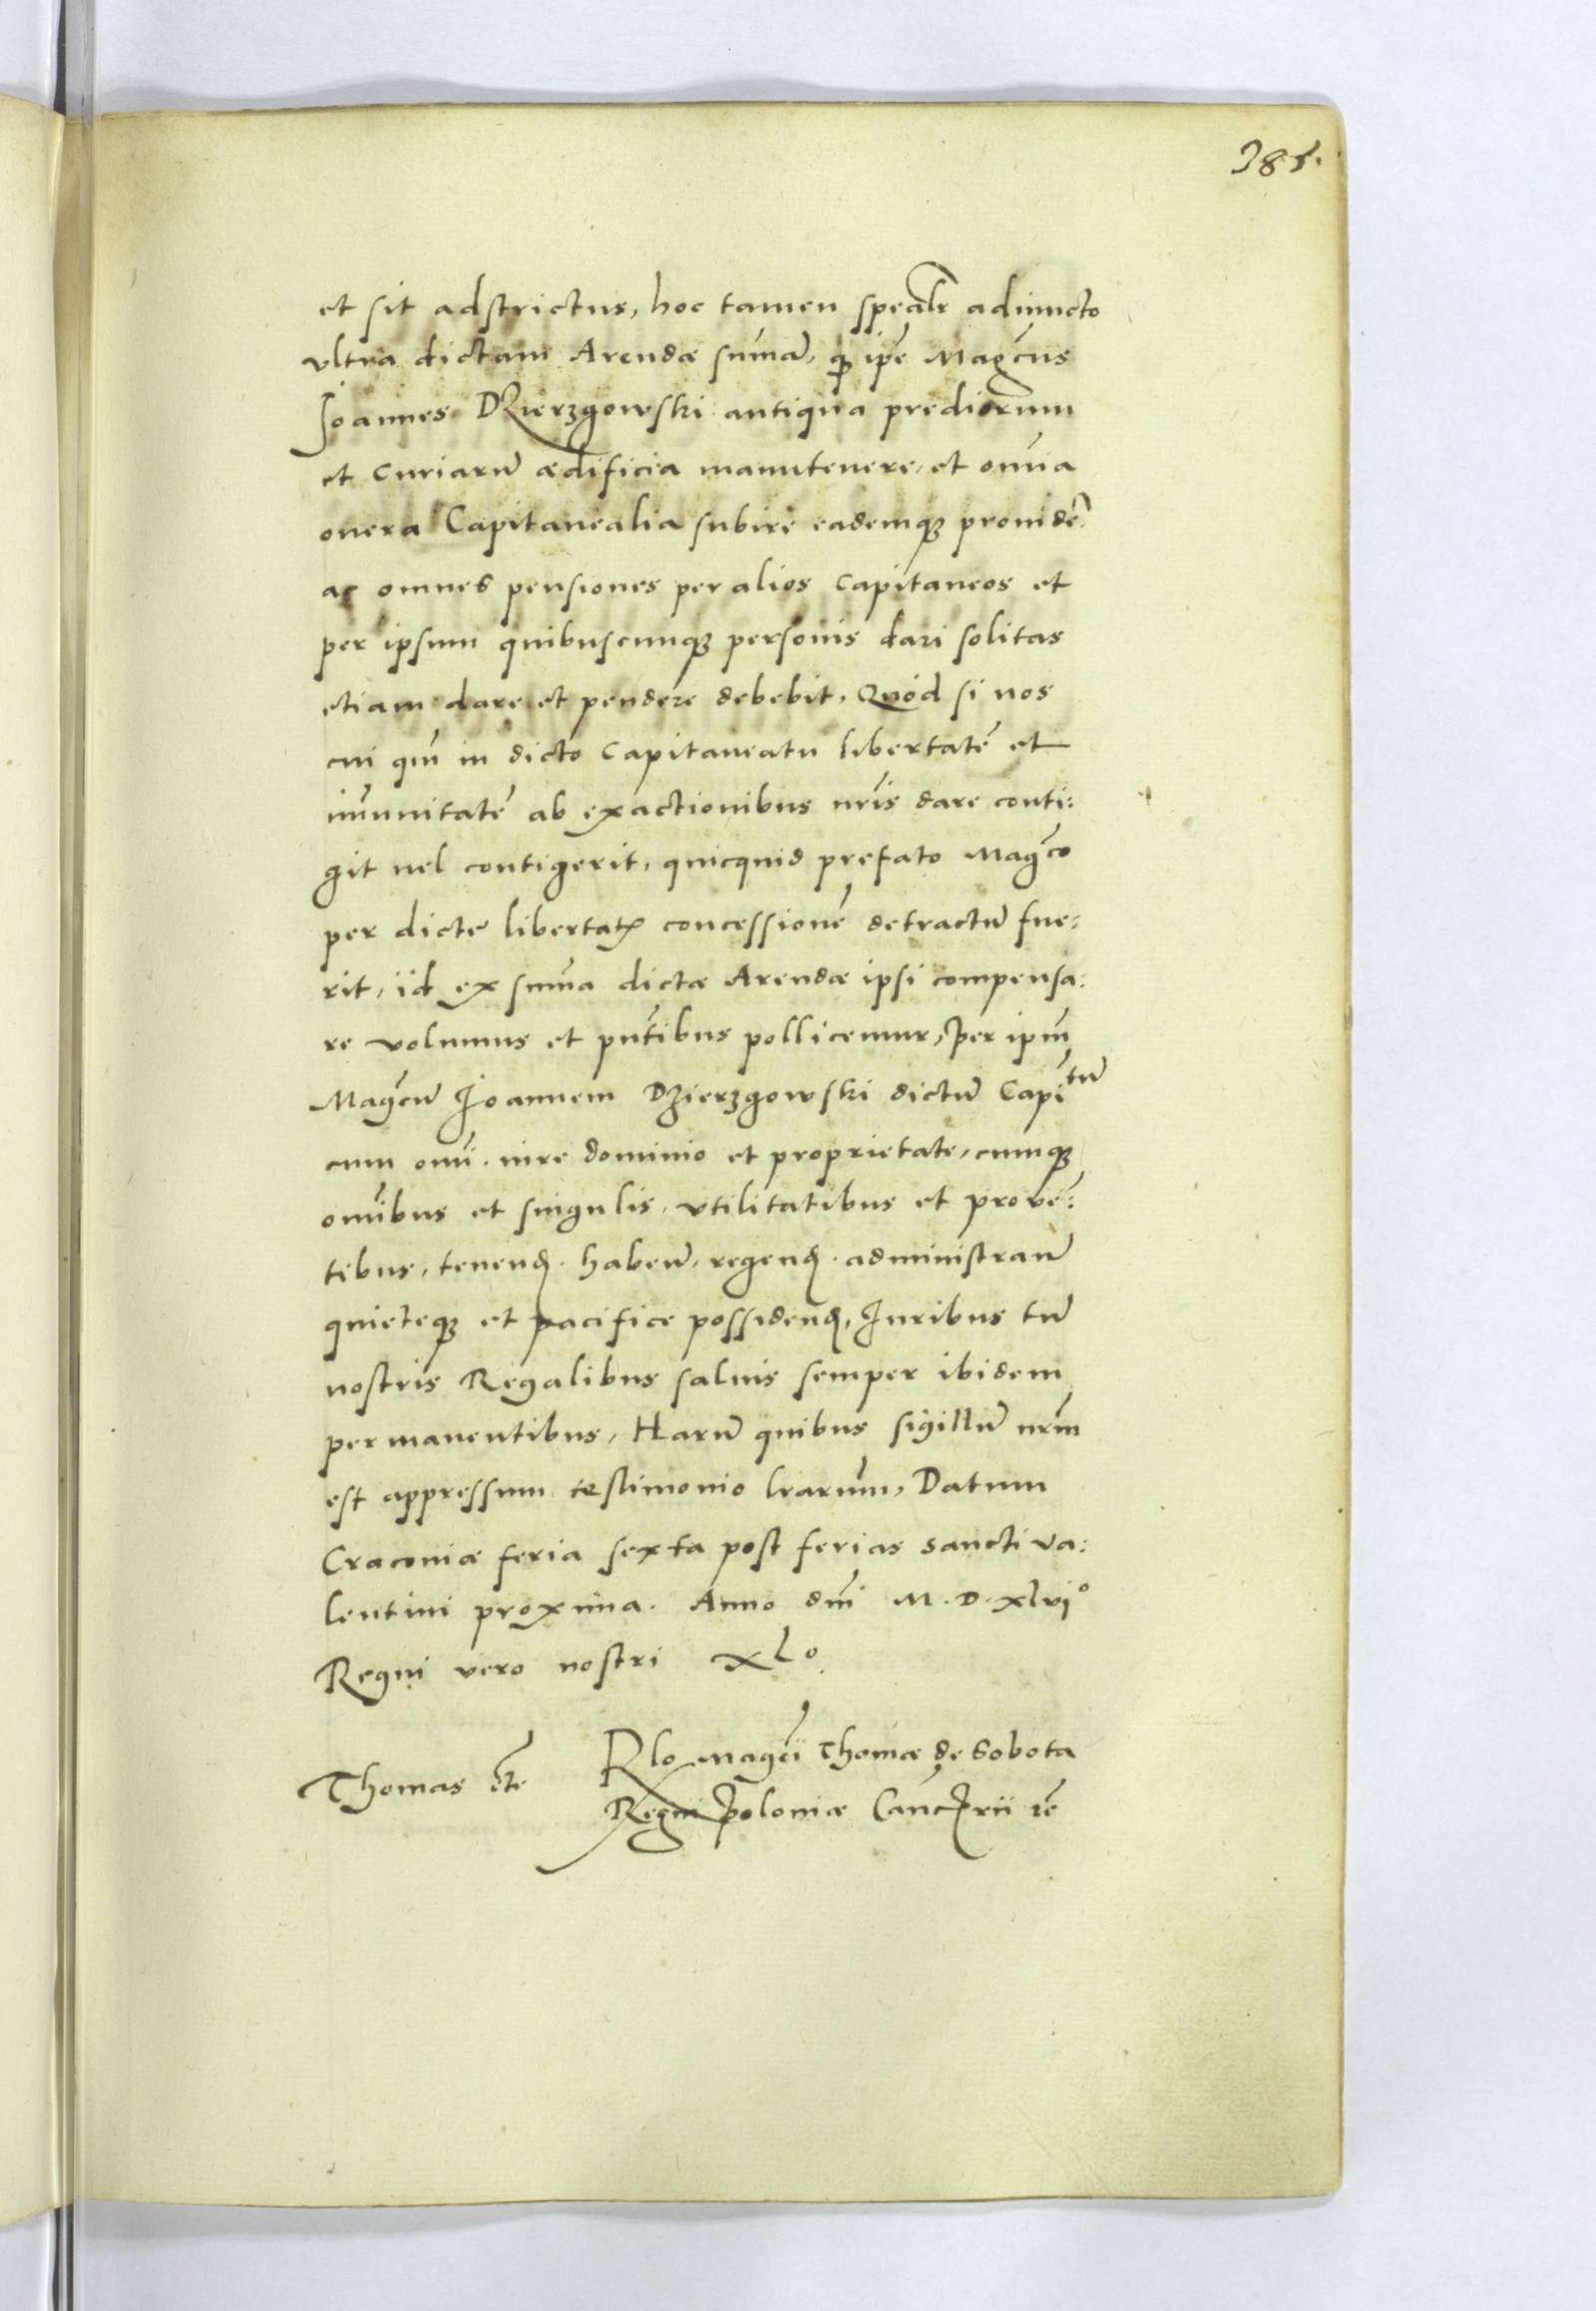 385.
et sit adstrictus, hoc tamen spealr adiuncto
vltra dictam Arendæ summã, qp ipẽ Magc̃us
Joannes Dzierzgowski antiqua prediorum
et curiarũ ædificia manutenere, et om̃ia
onera Capitanealia subire eademqȝ prouidẽ
ac omnes pensiones per alios capitaneos et
per ipsum quibuscunqȝ personis dari solitas
etiam dare et pendere debebit, Quód si nos
cui qm̃ in dicto Capitaneatu libertatẽ et
im̃unitatẽ ab exactionibus nr̃is dare conti:
git uel contigerit, quicquid prefato Magc̃o
per dictę libertatꝭ concessionẽ detractũ fue:
rit, id ex sum̃a dictæ Arendæ ipsi compensa:
re volumus et pn̄tibus pollicemur, Per ipm̃
Magc̃ũ Joannem Dzierzgowski dictũ Capitũ
cum om̃i iure dominio et proprietate, cumqȝ
om̃ibus et singulis vtilitatibus et prouẽ:
tibus, tenenđ. habenđ, regenđ. administranđ
quieteqȝ et pacifice possidenđ, Juribus tñ
nostris Regalibus saluis semper ibidem
permanentibus, Harũ quibus sigillũ nrm̃
est appressum testimonio lrarum, Datum
Cracouiæ feria sexta post ferias sancti Va:
lentini proxima. Anno dm̃i M. D. xlvi°
Regni vero nostri xLo
Rlo magc̃i Thomæ de Sobota
Thomas
Regni Poloniæ Canc̃rii rẽ